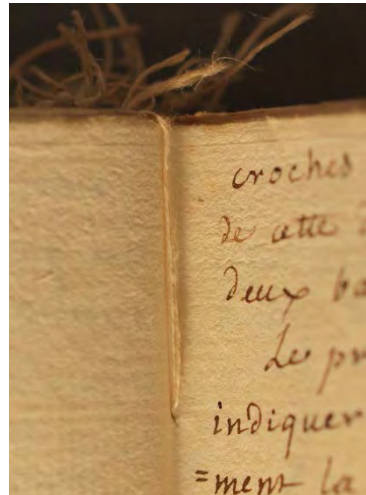 croches
de cette
deux
Le
indiquer
=ment la